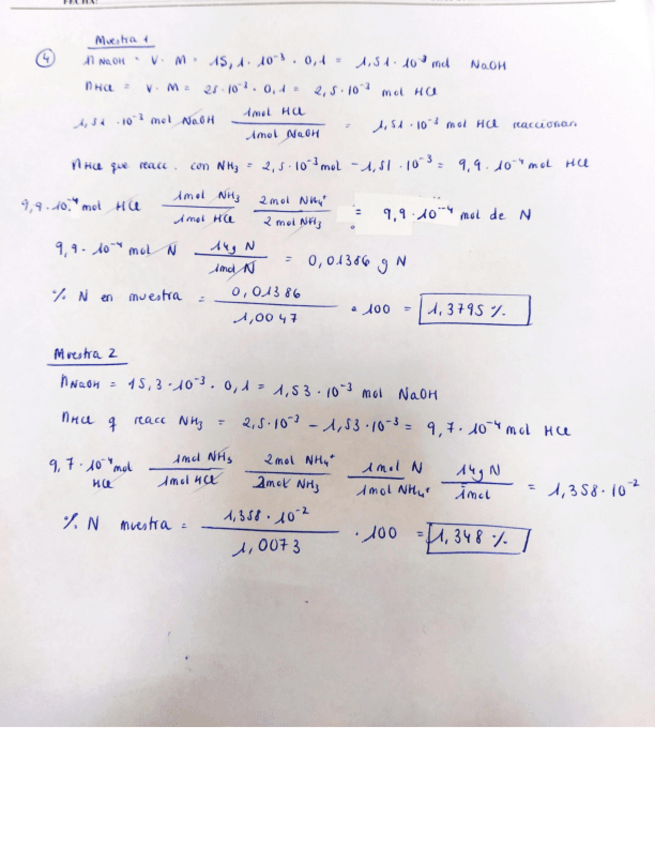 FECHA:
Muestra 1
④ n NaOH = V · M = 15,1 · 10⁻³ · 0,1 = 1,51 · 10⁻³ mol NaOH
nHCl = V · M = 25 · 10⁻³ · 0,1 = 2,5 · 10⁻³ mol HCl
1,51 · 10⁻³ mol NaOH 1mol HCl / 1mol NaOH = 1,51 · 10⁻³ mol HCl reaccionan
nHCl que reacc. con NH₃ = 2,5 · 10⁻³ mol − 1,51 · 10⁻³ = 9,9 · 10⁻⁴ mol HCl
9,9 · 10⁻⁴ mol HCl 1mol NH₃ / 1mol HCl 2mol NH₄⁺ / 2mol NH₃ = 9,9 · 10⁻⁴ mol de N
9,9 · 10⁻⁴ mol N 14g N / 1mol N = 0,01386 g N
% N en muestra = 0,01386 / 1,0047 · 100 = 1,3795 %
Muestra 2
nNaOH = 15,3 · 10⁻³ · 0,1 = 1,53 · 10⁻³ mol NaOH
nHCl q reacc NH₃ = 2,5 · 10⁻³ − 1,53 · 10⁻³ = 9,7 · 10⁻⁴ mol HCl
9,7 · 10⁻⁴ mol HCl 1mol NH₃ / 1mol HCl 2mol NH₄⁺ / 2mol NH₃ 1mol N / 1mol NH₄⁺ 14g N / 1mol = 1,358 · 10⁻²
% N muestra = 1,358 · 10⁻² / 1,0073 · 100 = 1,348 %